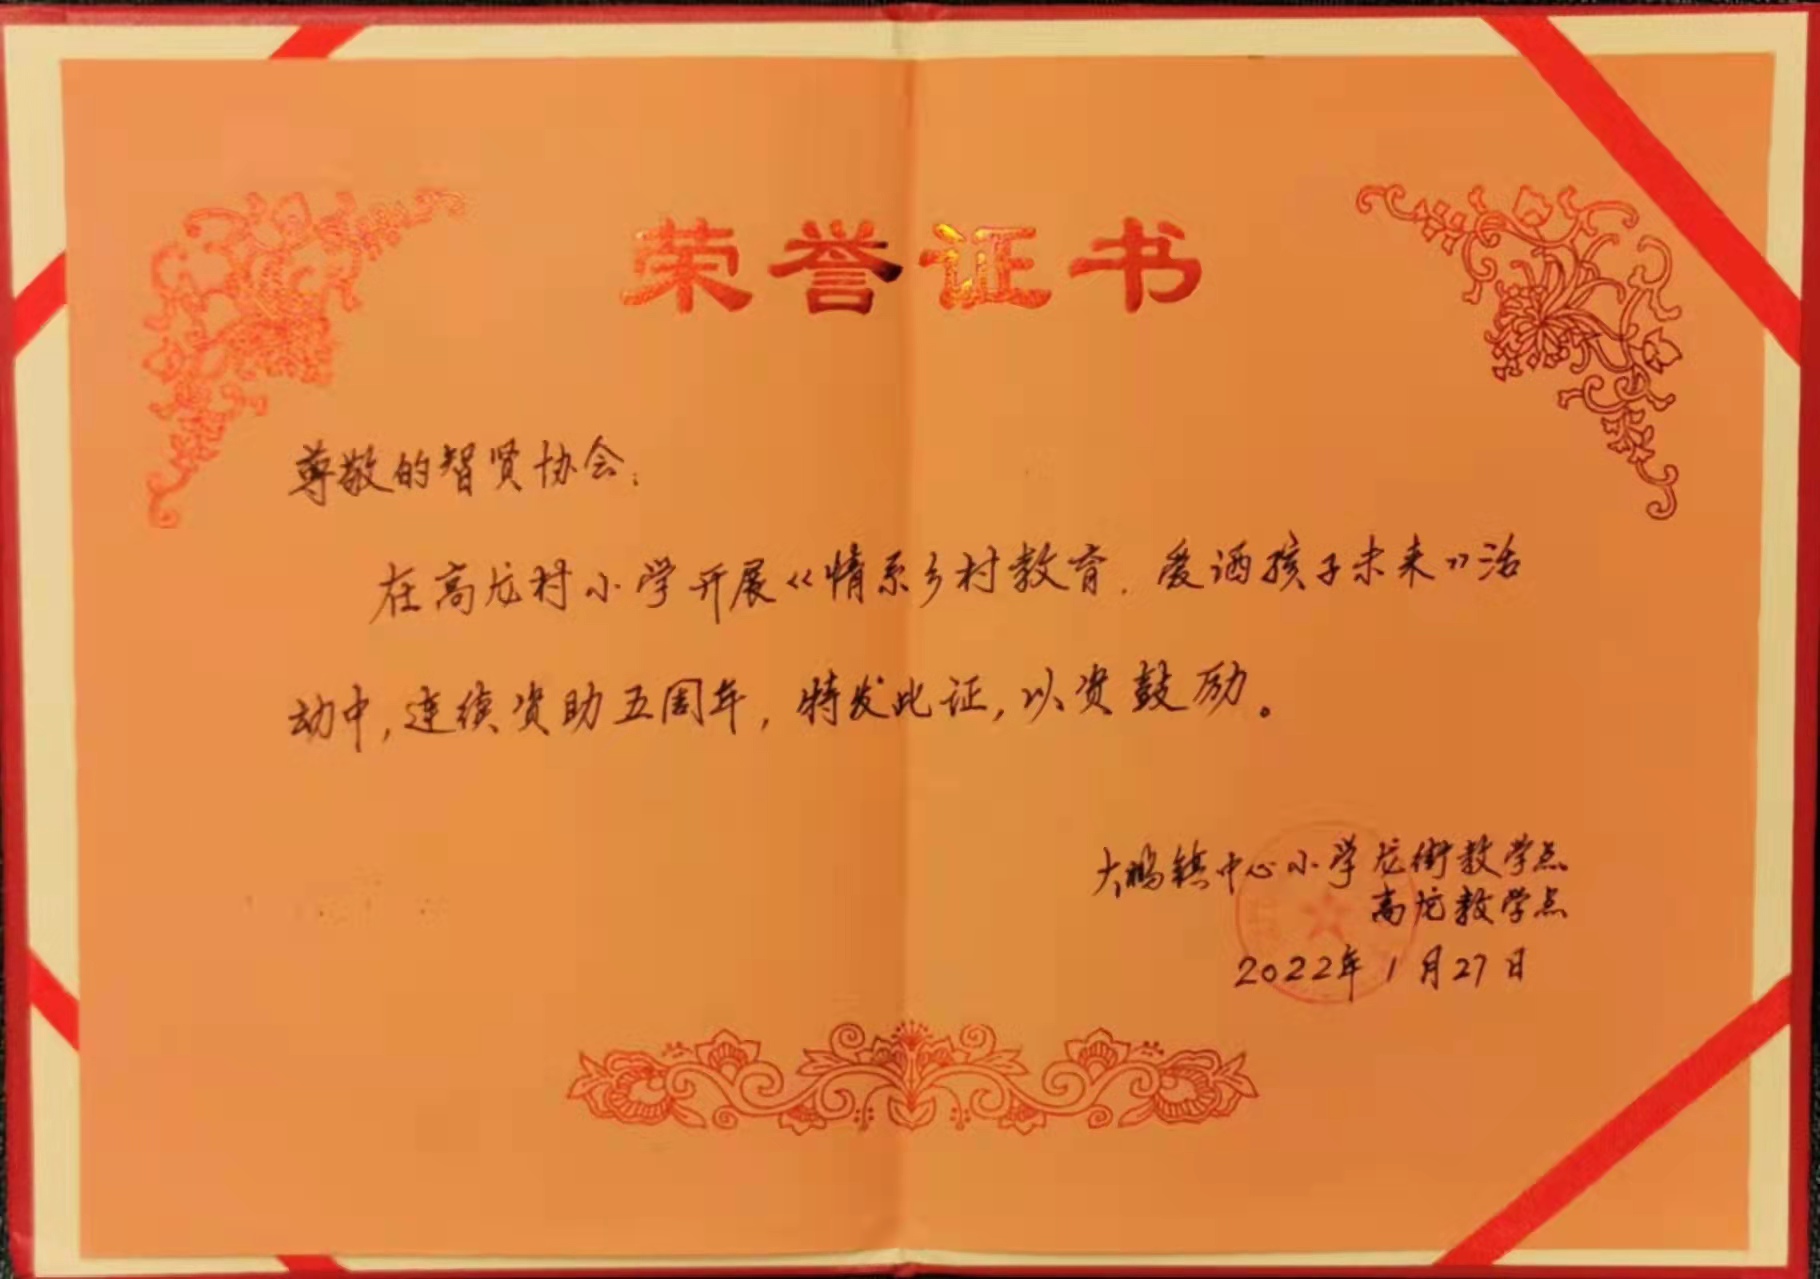 荣誉证书
尊敬的智贤协会:
在高龙村小学开展《情系乡村教育.爱洒孩子未来》活
动中,连续资助五周年,特发此证,以资鼓励。
大鹏镇中心小学龙街教学点
高龙教学点
2022年1月27日